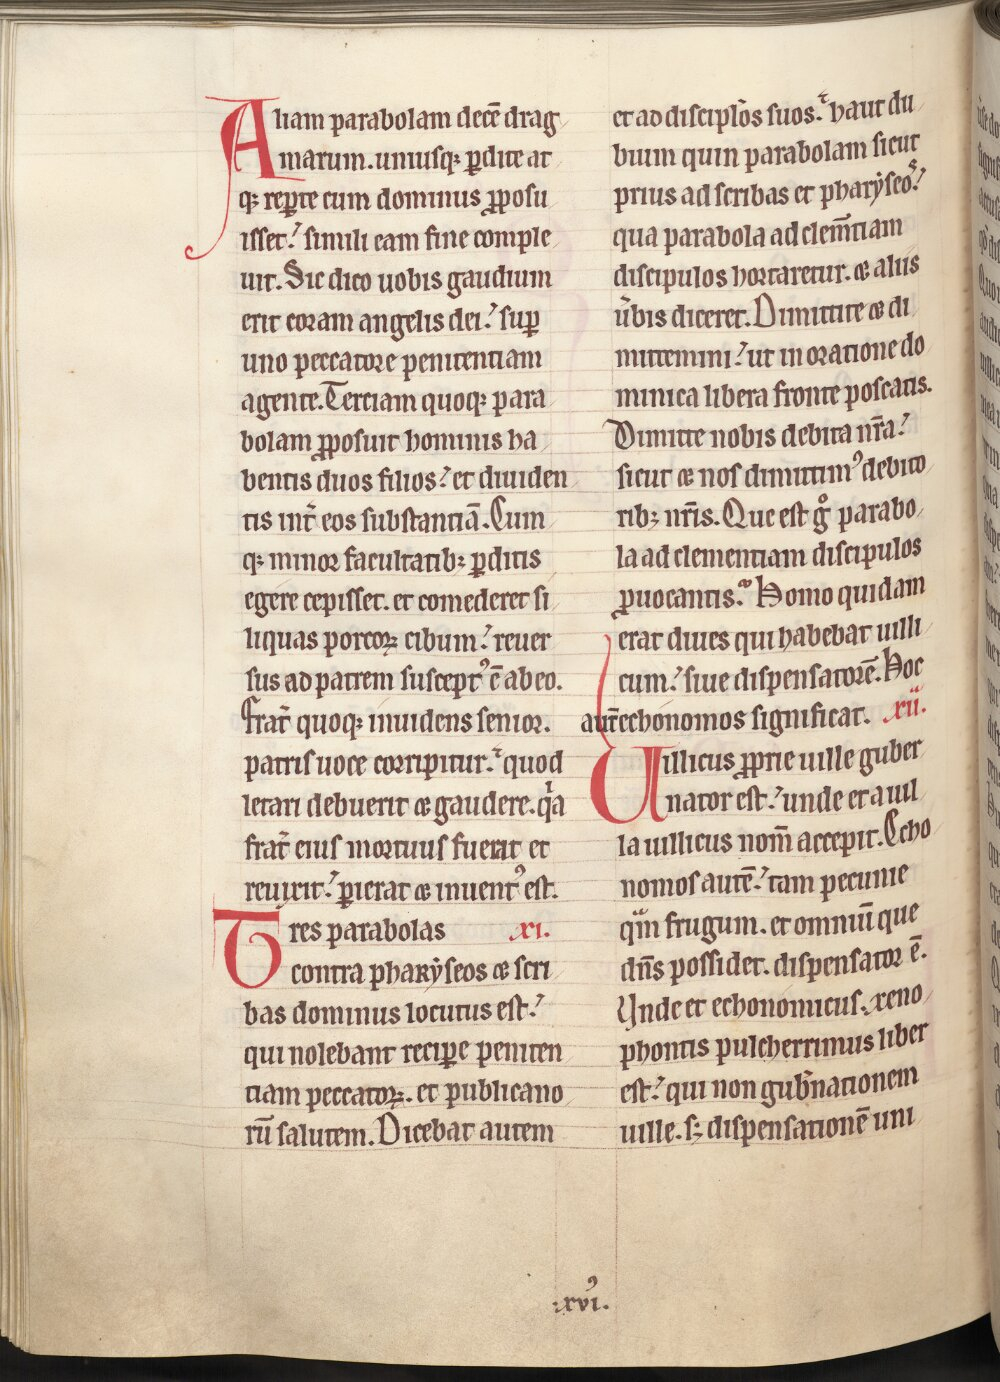 Aliam parabolam decē drag
marum. uniusq; ꝑdite at
q; reꝑte cum dominus ꝓposu
isset? simili eam fine comple
uit. Sic dico uobis gaudium
erit coram angelis dei? suꝑ
uno peccatore penitentiam
agente. Terciam quoq; para
bolam ꝓposuit hominis ha
bentis duos filios? et diuiden
tis int̄ eos substantiā. Cum
q; minor facultatib; ꝑditis
egere cepisset. et comederet si
liquas porcoꝝ cibum? reuer
sus ad patrem suscept᾿ ē ab eo.
Frat̄ quoq; inuidens senior.
patris uoce corripitur. quod
letari debuerit & gaudere. q̇a
frat̄ eius mortuus fuerat et
reuixit? ꝑierat & inuent᾿ est.
Tres parabolas xi.
contra pharẏseos & scri
bas dominus locutus est?
qui nolebant reciꝑe peniten
tiam peccatoꝝ. et publicano
rū salutem. Dicebat autem
et ad disciplōs suos. haut du
bium quin parabolam sicut
prius ad scribas et pharẏseos?
qua parabola ad clem̄tiam
discipulos hortaretur. & aliis
ūbis diceret. Dimittite & di
mittemini? ut in oratione do
minica libera fronte poscatis.
Dimitte nobis debita nr̄a?
sicut & nos dimittim᾿ debito
rib; nr̄is. Que est gͦ parabo
la ad clementiam discipulos
ꝓuocantis. Homo quidam
erat diues qui habebat uilli
cum? siue dispensatorē. Hoc
aut̄ echonomos significat. xii.
Uillicus ꝓprie uille guber
nator est? unde et a uil
la uillicus nom̄ accepit. Echo
nomos autē? tam pecunie
qͣm frugum. et omniū que
dn̄s possidet. dispensator ē.
Unde et echonomicus. xeno
phontis pulcherrimus liber
est? qui non gub̄nationem
uille. s; dispensationē uni
.xvi᾿.